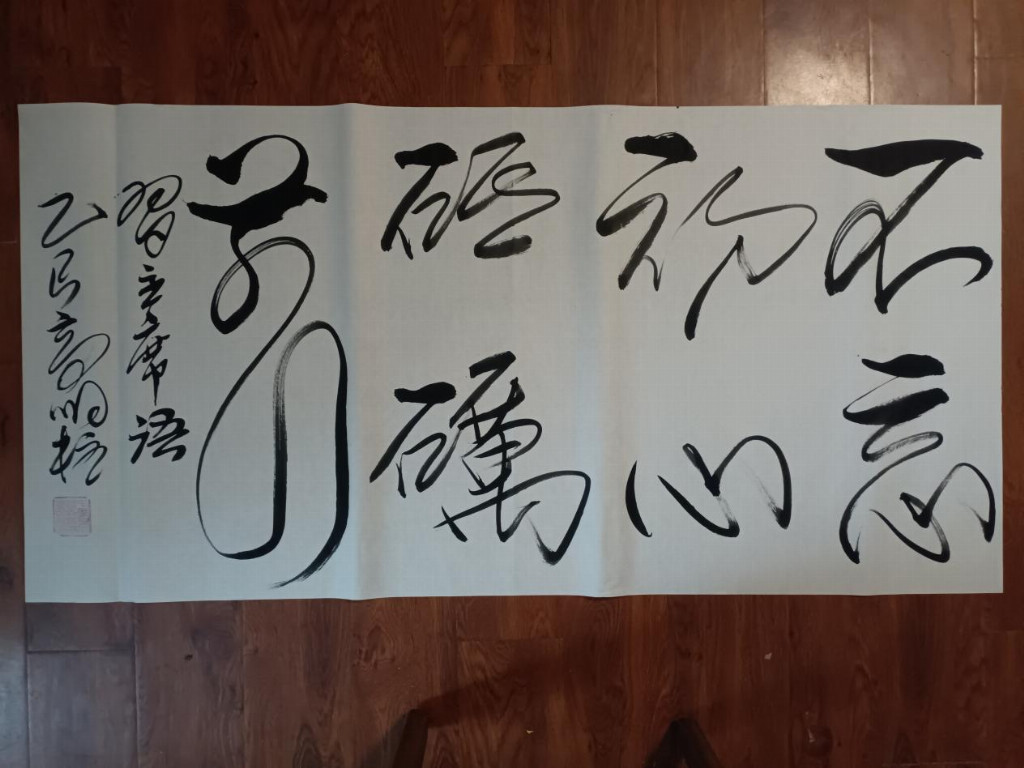 不忘
初心
砥礪
前行
習主席語
乙巳高